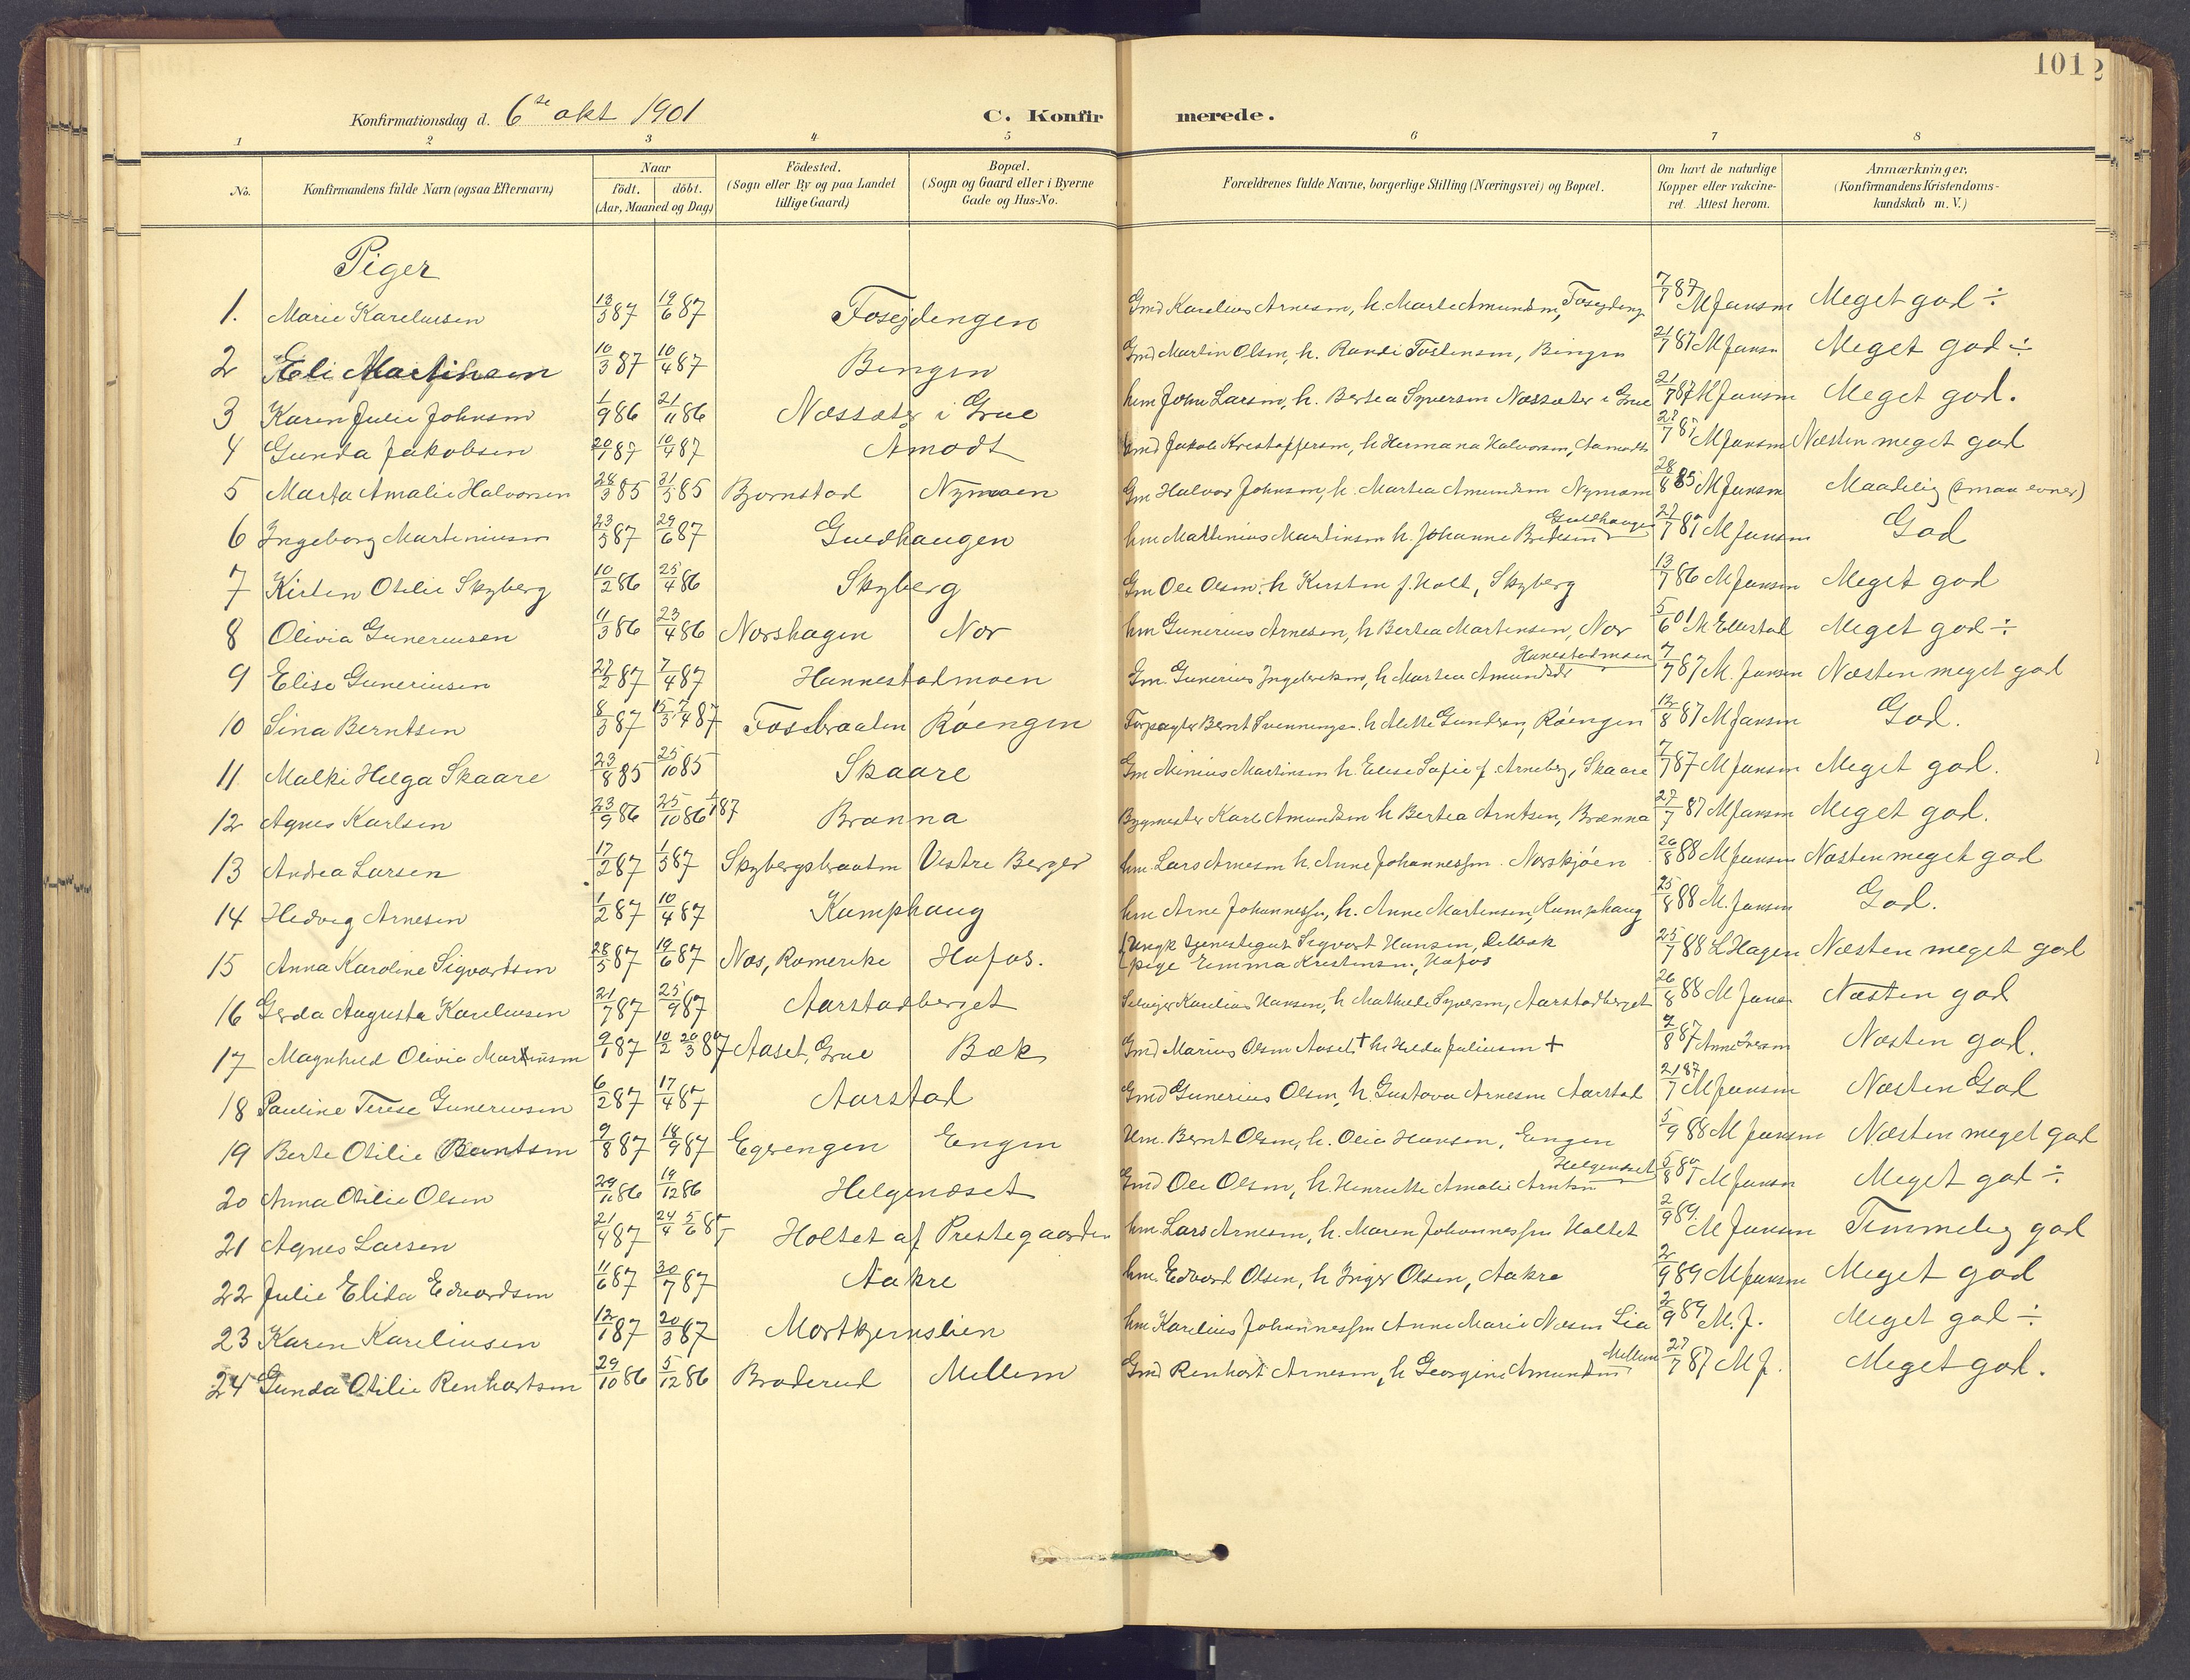 101
2
Konfirmationsdag d. 6te okt 1901 C. Konfirmerede.
1 2 3 4 5 6 7 8
No. Konfirmandens fulde Navn (ogsaa Efternavn) Naar födt. döbt. (Aar, Maaned og Dag) Födested. (Sogn eller By og paa Landet tillige Gaard) Bopæl. (Sogn og Gaard eller i Byerne Gade og Hus-No. Forældrenes fulde Navne, borgerlige Stilling (Næringsvei) og Bopæl. Om havt de naturlige Kopper eller vakcineret. Attest herom. Anmærkninger. (Konfirmandens Kristendomskundskab m. V.)
Piger
1. Marie Kareliussen 13/3 87 19/6 87 Fosejdengen Gmd Karelius Arnesen, h. Marte Amundsen, Fosejdeng 7/7 87 M Jansen Meget god ÷
2 Eli Martinsen 10/3 87 10/4 87 Bingen Gmd Martin Olsen, h. Randi Tostensen, Bingen 21/7 87 M Jansen Meget god ÷
3 Karen Julie Johnsen 1/9 86 21/11 86 Næssæter i Grue hm John Larsen, h. Bertea Syversen Næssæter i Grue 21/7 87 M Jansen Meget god.
4 Gunda Jakobsen 20/1 87 10/4 87 Amodt Gmd Jakob Kristoffersen, h Hermana Halvorsen, Aamodt 27/7 87 M Jansen Næsten meget god
5 Marta Amalie Halvorsen 28/3 85 31/5 85 Bjornstad Nymoen Gm Halvor Johnson, h. Martea Amundsen Nymoen 28/8 85 M Jansen Maadelig (smaa evner)
6 Ingeborg Martiniusen 23/5 87 29/6 87 Guldhaugen hm Martinius Martinsen h. Johanne Bredesen Guldhaugen 27/7 87 M Jansen God
7 Kirsten Otilie Skyberg 10/2 86 25/4 86 Skyberg Gm Ole Olsen, h Kirsten f. Holt, Skyberg 13/7 86 M Jansen Meget god
8 Olivia Guneriusen 11/3 86 23/4 86 Norshagen Nor hm Gunerius Arnesen, h Bertea Martinsen, Nor 5/6 01 M Ellestad Meget god ÷
9 Elise Guneriusen 27/2 87 7/4 87 Hannestadmoen Gm. Gunerius Ingebrektsen, h Martea Amundsdr Hanestadmoen 7/7 87 M. Jansen Næsten meget god
10 Sina Berntsen 8/3 87 15/3 7/4 87 Fosbraaten Röengen Forpagter Bernt Svennings. h Alette Gundersen, Röengen 12/8 87 M Jansen God.
11 Malki Helga Skaare 23/8 85 25/10 85 Skaare Gm Minius Martinsen h. Elise Sofie f. Arneberg, Skaare 7/7 87 M Jansen Meget god.
12 Agnes Karlsen 23/9 86 25/10 86 1/1 87 Branna Bygmester Karl Amundsen h Bertea Arntsen, Brænna 27/7 87 M Jansen Meget god.
13 Andrea Larsen 17/2 87 1/5 87 Skybergsbraaten Vestre Berger hm. Lars Arnesen h. Anne Johannessen. Norskjöen 26/8 88 M Jansen Næsten meget god
14 Hedvig Arnesen 1/2 87 10/4 87 Kamphaug hm Arne Johannessen, h. Anne Martensen, Kamphaug 25/8 88 M. Jansen God.
15 Anna Karoline Sigvartsen 28/5 87 19/6 87 Næs, Romerike Hofos. Ungk tjenestegut Sigvart Hansen,
pige Emma Kristensen, Hofos 25/7 88 L Hagen Næsten meget god
16 Gerda Augusta Kareliussen 21/7 87 25/9 87 Aarstadberget Selveier Karelius Hansen, h Mathilde Syversen, Aarstadberget 26/8 88 M Jansen Næsten god
17 Magnhild Olivia Mariusen 9/1 87 10/2 20/3 87 Aaset, Grue Bæk Gmd Marius Olsen Aaset † h. Hilda Juliusen † 9/8 87 Anne Iversen Næsten god.
18 Pauline Terese Guneriusen 6/2 87 17/4 87 Aarstad Gmd Gunerius Olsen, h. Gustava Arnesen Aarstad 21/7 87 M Jansen Næsten God
19 Berte Otilie Berntsen 9/8 87 18/9 87 Egerengen Engen Hm. Bernt Olsen, h. Olia Hansen, Engen 5/9 88 M Jansen Næsten meget god
20 Anna Otilie Olsen 29/11 86 19/12 86 Helgenæset Gmd Ole Olsen, h. Henriette Amalie Arntsen Helgenæset 5/8 87 M Jansen Meget god ÷
21 Agnes Larsen 21/4 87 24/4 5/6 87 Holtet af Prestegaarden hm. Lars Arnesen, h. Maren Johannessen Holtet 2/9 89. M Jansen Temmelig god
22 Julie Elida Edvardsen 11/6 87 30/7 87 Aakre hm. Edvard Olsen, h Inger Olsen, Aakre 2/9 89 M Jansen Meget god
23 Karen Kareliusen 12/1 87 20/3 87 Mortkjernslien hm Karelius Johannessen Anne Marie Nilsen Lia 2/9 89 M. J. Meget god ÷
24 Gunda Otilie Renhartsen 29/10 86 5/12 86 Broderud Mellem Gmd Renhart Arnesen, h Georgine Amundsen Mellem 27/7 87 M J. Meget god.